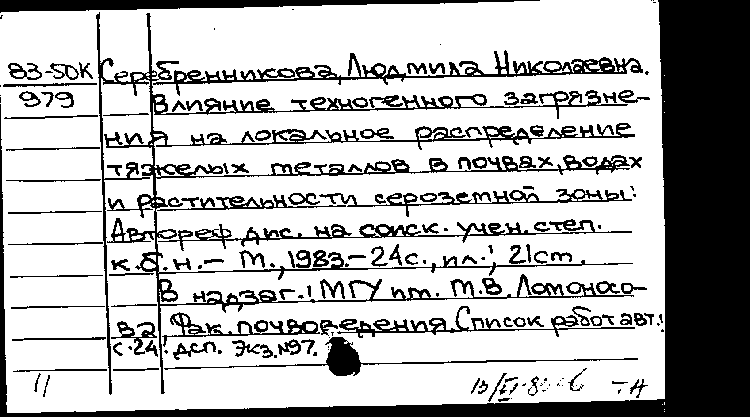 83-50К Серебренникова, Людмила Николаевна.
979 Влияние техногенного загрязне-
ния на локальное распределение
тяжелых металлов в почвах, водах
и растительности сероземной зоны:
Автореф. дис. на соиск. учен. степ.
к.б.н. – М., 1983. – 24с., ил.; 21см.
В надзаг.: МГУ им. М.В. Ломоносо-
ва, Фак. почвоведения. Список работ авт.:
с.24. ДСП. Экз. №97.
11 ТН